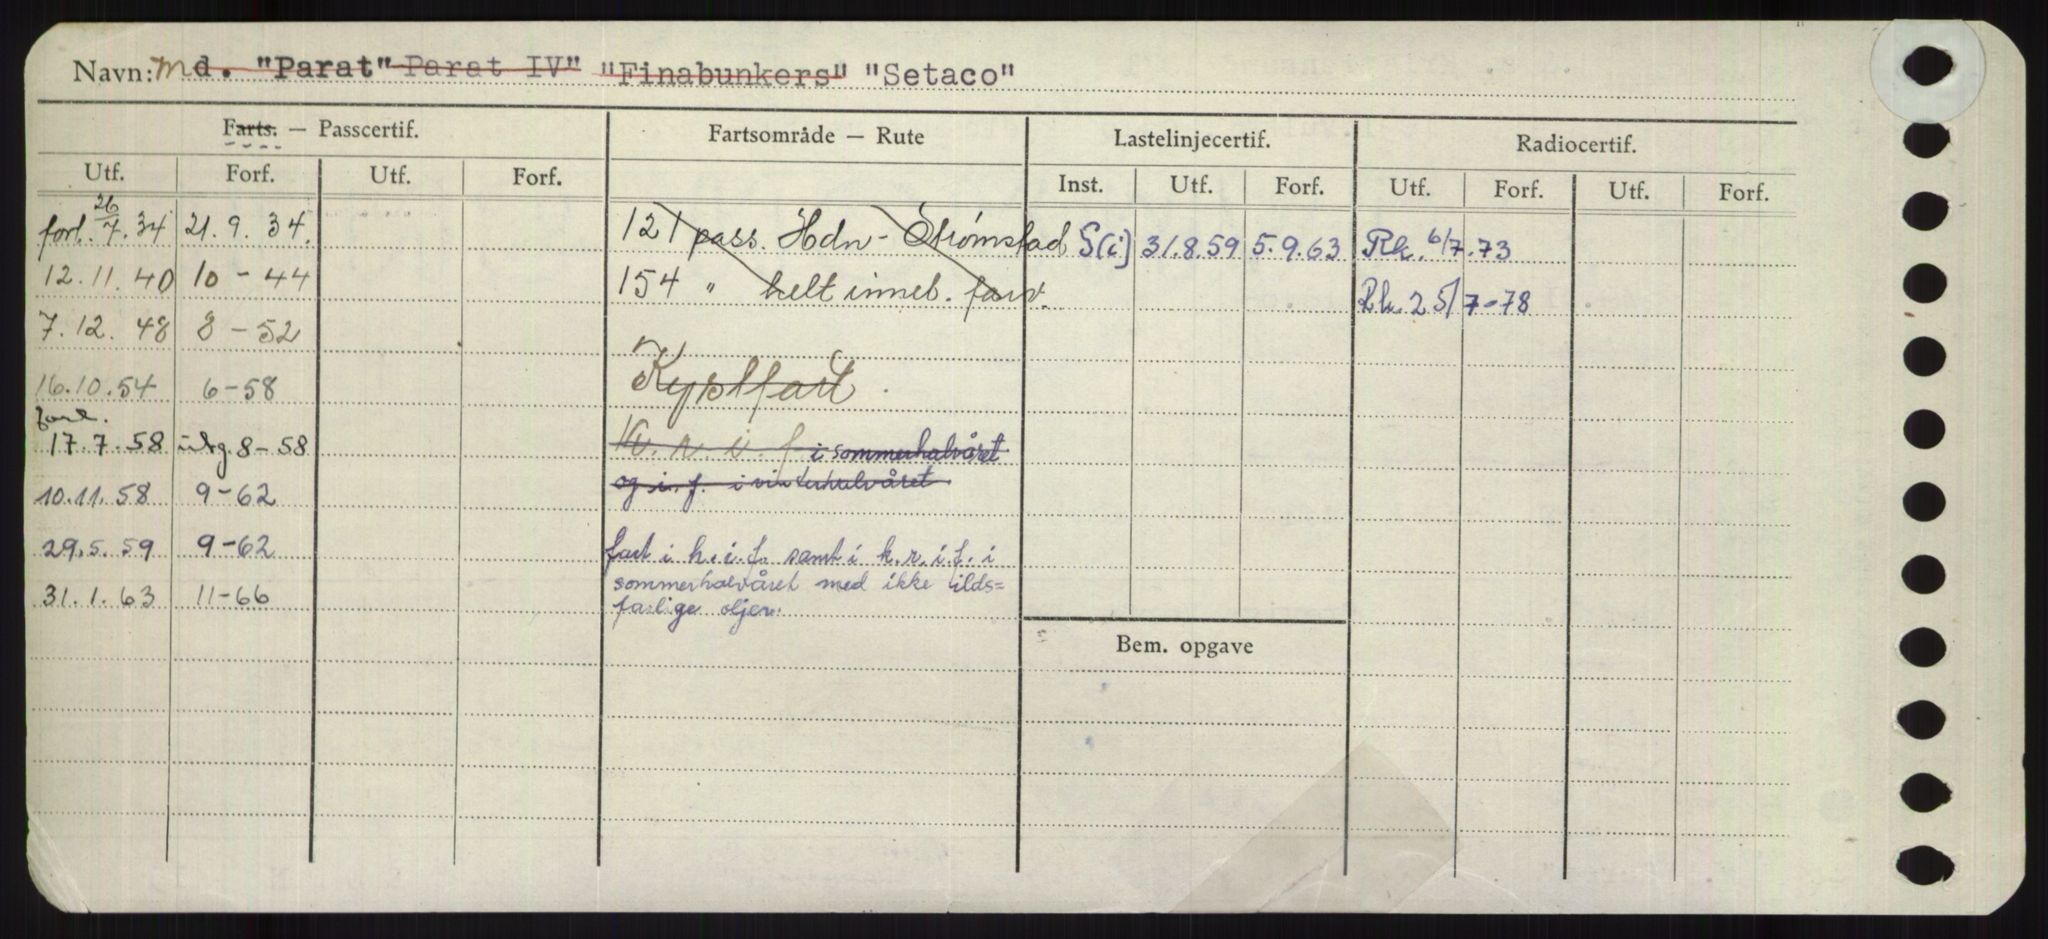 Navn: Md. "Parat" Parat IV" "Finabunkers" "Setaco"
Farts. — Passcertif. Fartsområde — Rute Lastelinjecertif. Radiocertif.
Utf. Forf. Utf. Forf. Inst. Utf. Forf. Utf. Forf. Utf. Forf.
forl. 26/7.34 21.9.34. 121 pass. Hdn - Strømstad S(i) 31.8.59 5.9.63 Rk. 6/7.73
12.11.40 10-44 154 " helt inneb. farv. Rk. 25/7-78
7.12.48 8-52
16.10.54 6-58 Kystfart.
forl.
17.7.58 utg. 8-58 k. r. i. f. i sommerhalvåret
10.11.58 9-62 og i. f. i vinterhalvåret
29.5.59 9-62 fart i h.i.f. samt i k.r.i.f. i
31.1.63 11-66 sommerhalvåret med ikke ilds=
farlige oljer.
Bem. opgave